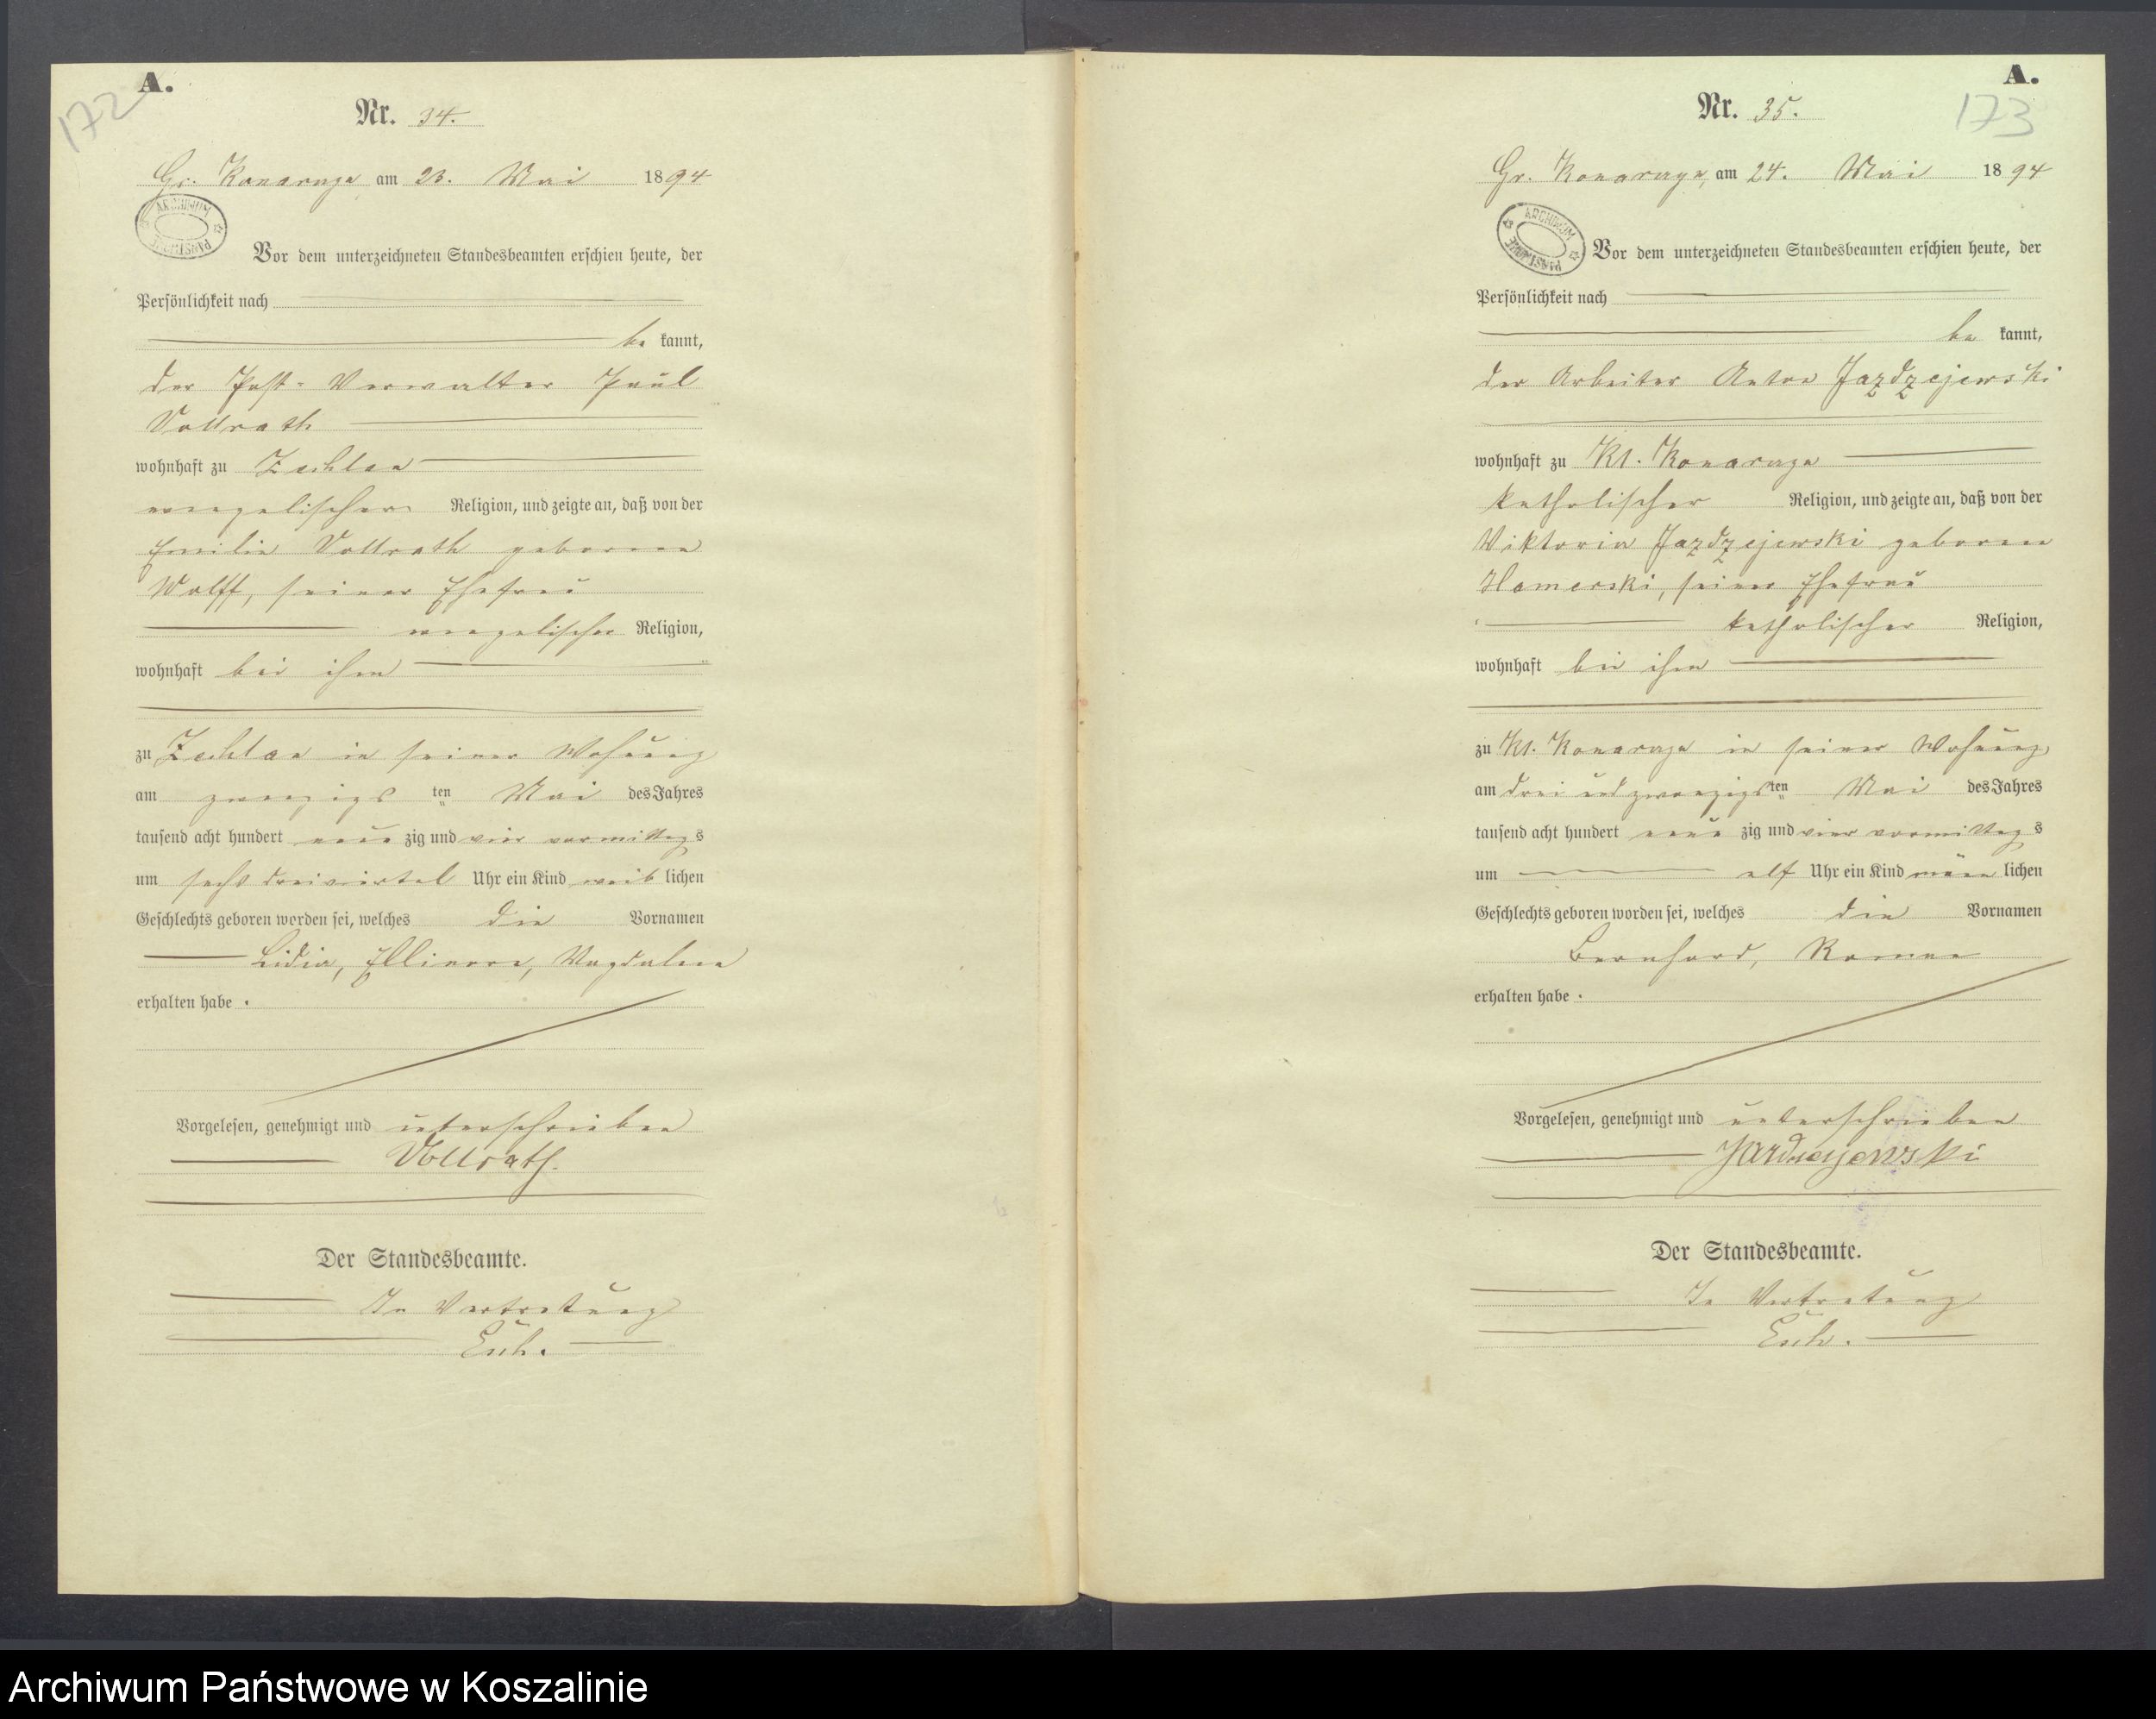 172
A.
Nr. 34.
Gr. Konarzyn am 23. Mai 1894
ARCHIWUM PAŃSTWOWE
Vor dem unterzeichneten Standesbeamten erschien heute, der
Persönlichkeit nach
be kannt,
der Post-Verwalter Paul
Vollrath
wohnhaft zu Zechlau
evangelischer Religion, und zeigte an, daß von der
Emilie Vollrath geborene
Wolff, seiner Ehefrau
evangelischer Religion,
wohnhaft bei ihm
zu Zechlau in seiner Wohnung
am zwanzigsten Mai des Jahres
tausend acht hundert neun zig und vier vormittags
um sechs dreiviertel Uhr ein Kind weib lichen
Geschlechts geboren worden sei, welches die Vornamen
Lidia, Ellinore, Magdalene
erhalten habe.
Vorgelesen, genehmigt und unterschrieben
Vollrath.
Der Standesbeamte.
In Vertretung
A.
173
Nr. 35.
Gr. Konarzyn, am 24. Mai 1894
ARCHIWUM PAŃSTWOWE
Vor dem unterzeichneten Standesbeamten erschien heute, der
Persönlichkeit nach
be kannt,
der Arbeiter Anton Jazdzejewski
wohnhaft zu Kl. Konarzyn
katholischer Religion, und zeigte an, daß von der
Viktoria Jazdzejewski geborene
Hamerski, seiner Ehefrau
katholischer Religion,
wohnhaft bei ihm
zu Kl. Konarzyn in seiner Wohnung
am drei und zwanzigsten Mai des Jahres
tausend acht hundert neun zig und vier vormittags
um elf Uhr ein Kind männ lichen
Geschlechts geboren worden sei, welches die Vornamen
Bernhard, Roman
erhalten habe.
Vorgelesen, genehmigt und unterschrieben
Der Standesbeamte.
In Vertretung
Archiwum Państwowe w Koszalinie